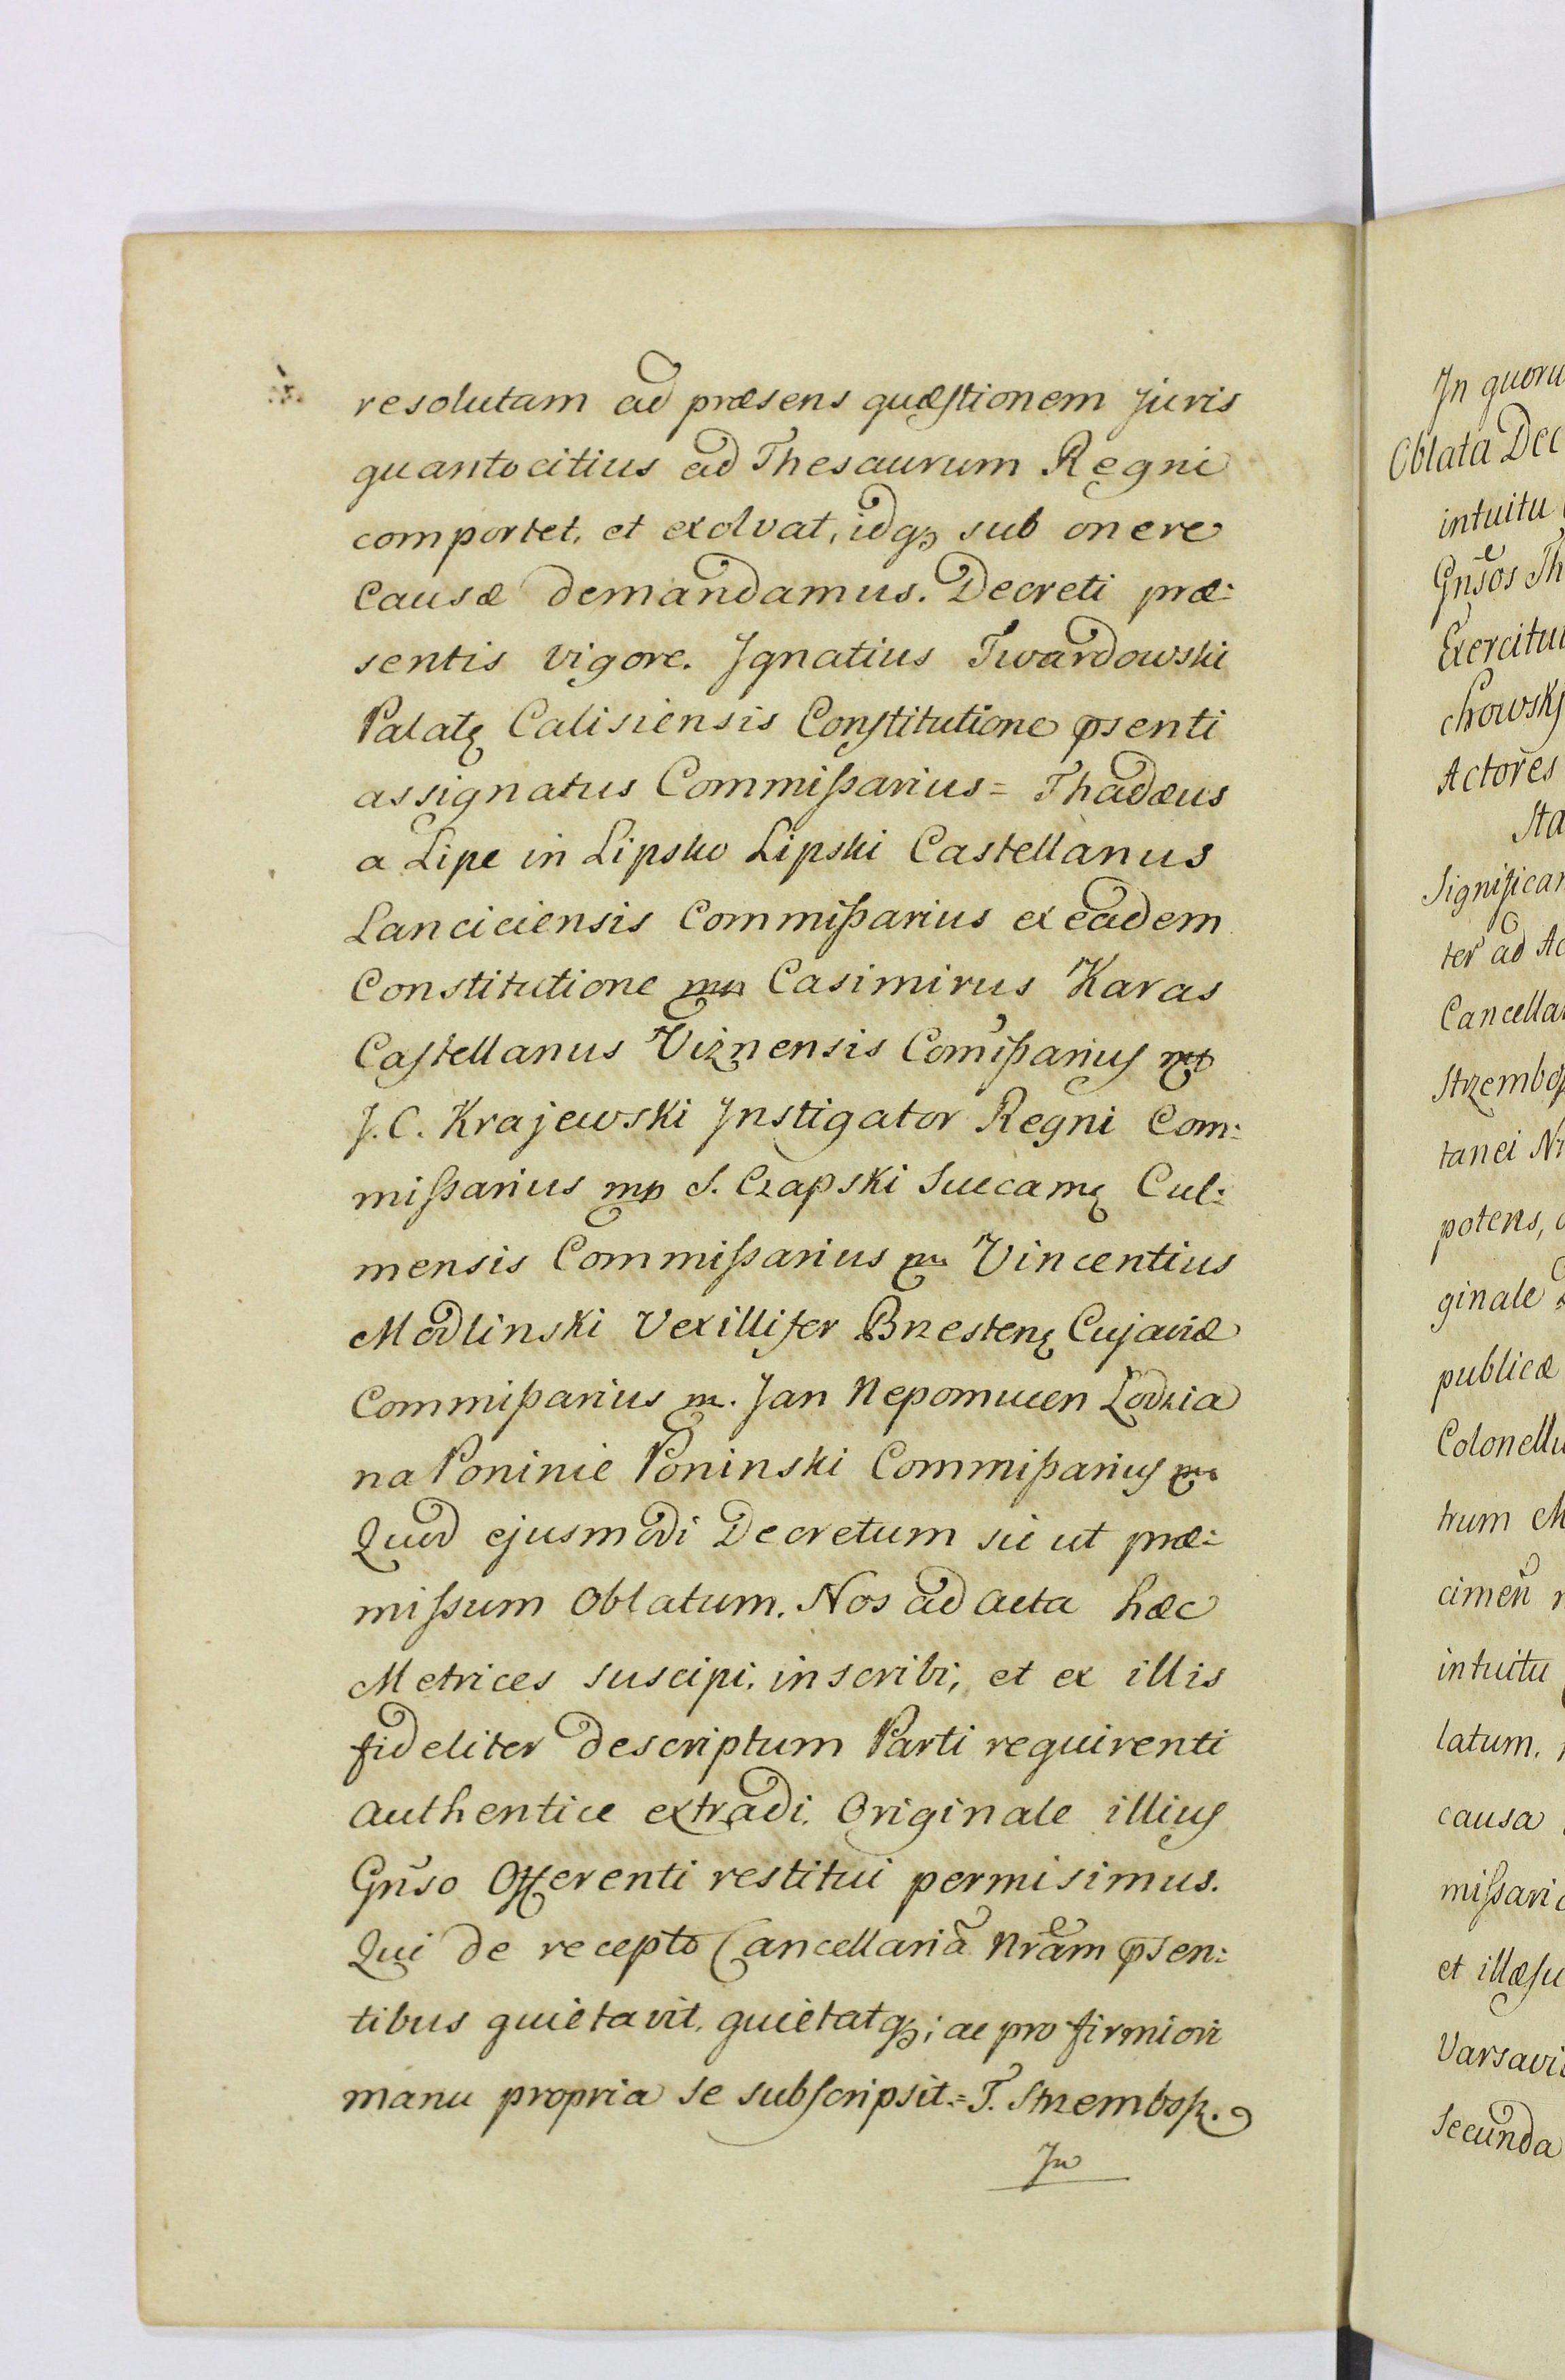 resolutam ad præsens quæstionem Juris
quantocitius ad Thesaurum Regni
comportet, et exolvat, idq3 sub onere
Causæ demandamus. Decreti præ:
sentis vigore. Ignatius Twardowski
Palatę Calisiensis Constitutione psenti
assignatus Commißarius = Thadæus
a Lipe in Lipsko Lipski Castellanus
Lanciciensis Commißarius ex eadem
Constitutione mp Casimirus Karas
Castellanus Viznensis Com̃ißarius mp
J. C. Krajewski Instigator Regni Com:
mißarius mp S. Czapski Succamę Cul:
mensis Commißarius mp Vincentius
Modlinski Vexillifer Brzestenę Cujaviæ
Commißarius m. Jan Nepomucen Lodzia
na Poninie Poninski Commißarius mp
Quod ejusmodi Decretum sic ut præ:
missum Oblatum. Nos ad Acta hæc
Metrices suscipi, inscribi, et ex illis
fideliter descriptum Parti requirenti
authentice extradi. Originale illius
Gñso Offerenti restitui permisimus.
Qui de recepto Cancellariã Nrãm psen:
tibus quietavit, quietatq3; ac pro firmiori
manu propria se subscripsit. = T. Strzembosz.
In
In quoru
Oblata Dec
intuitu
Gñsos Th
Exercituu
chowskj
Actores
Sta
Significan
ter ad Ac
Cancellar
Strzembos
tanei Nr
potens,
ginale
publicæ
Colonellu
trum M
cimeñ
intuitu
latum.
causa
mißari
et illæsu
Varsavi
Secunda